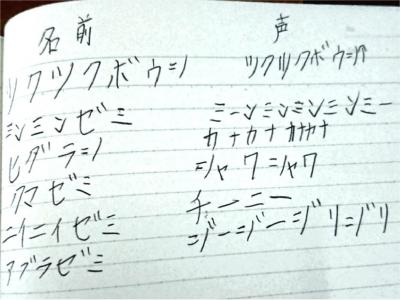 名前 声
ツクツクボウシ ツクツクボウシ
ミンミンゼミ ミーンミンミンミンミー
ヒグラシ カナカナカナカナ
クマゼミ シャワシャワ
ニイニイゼミ チーニー
アブラゼミ ジージージリジリ